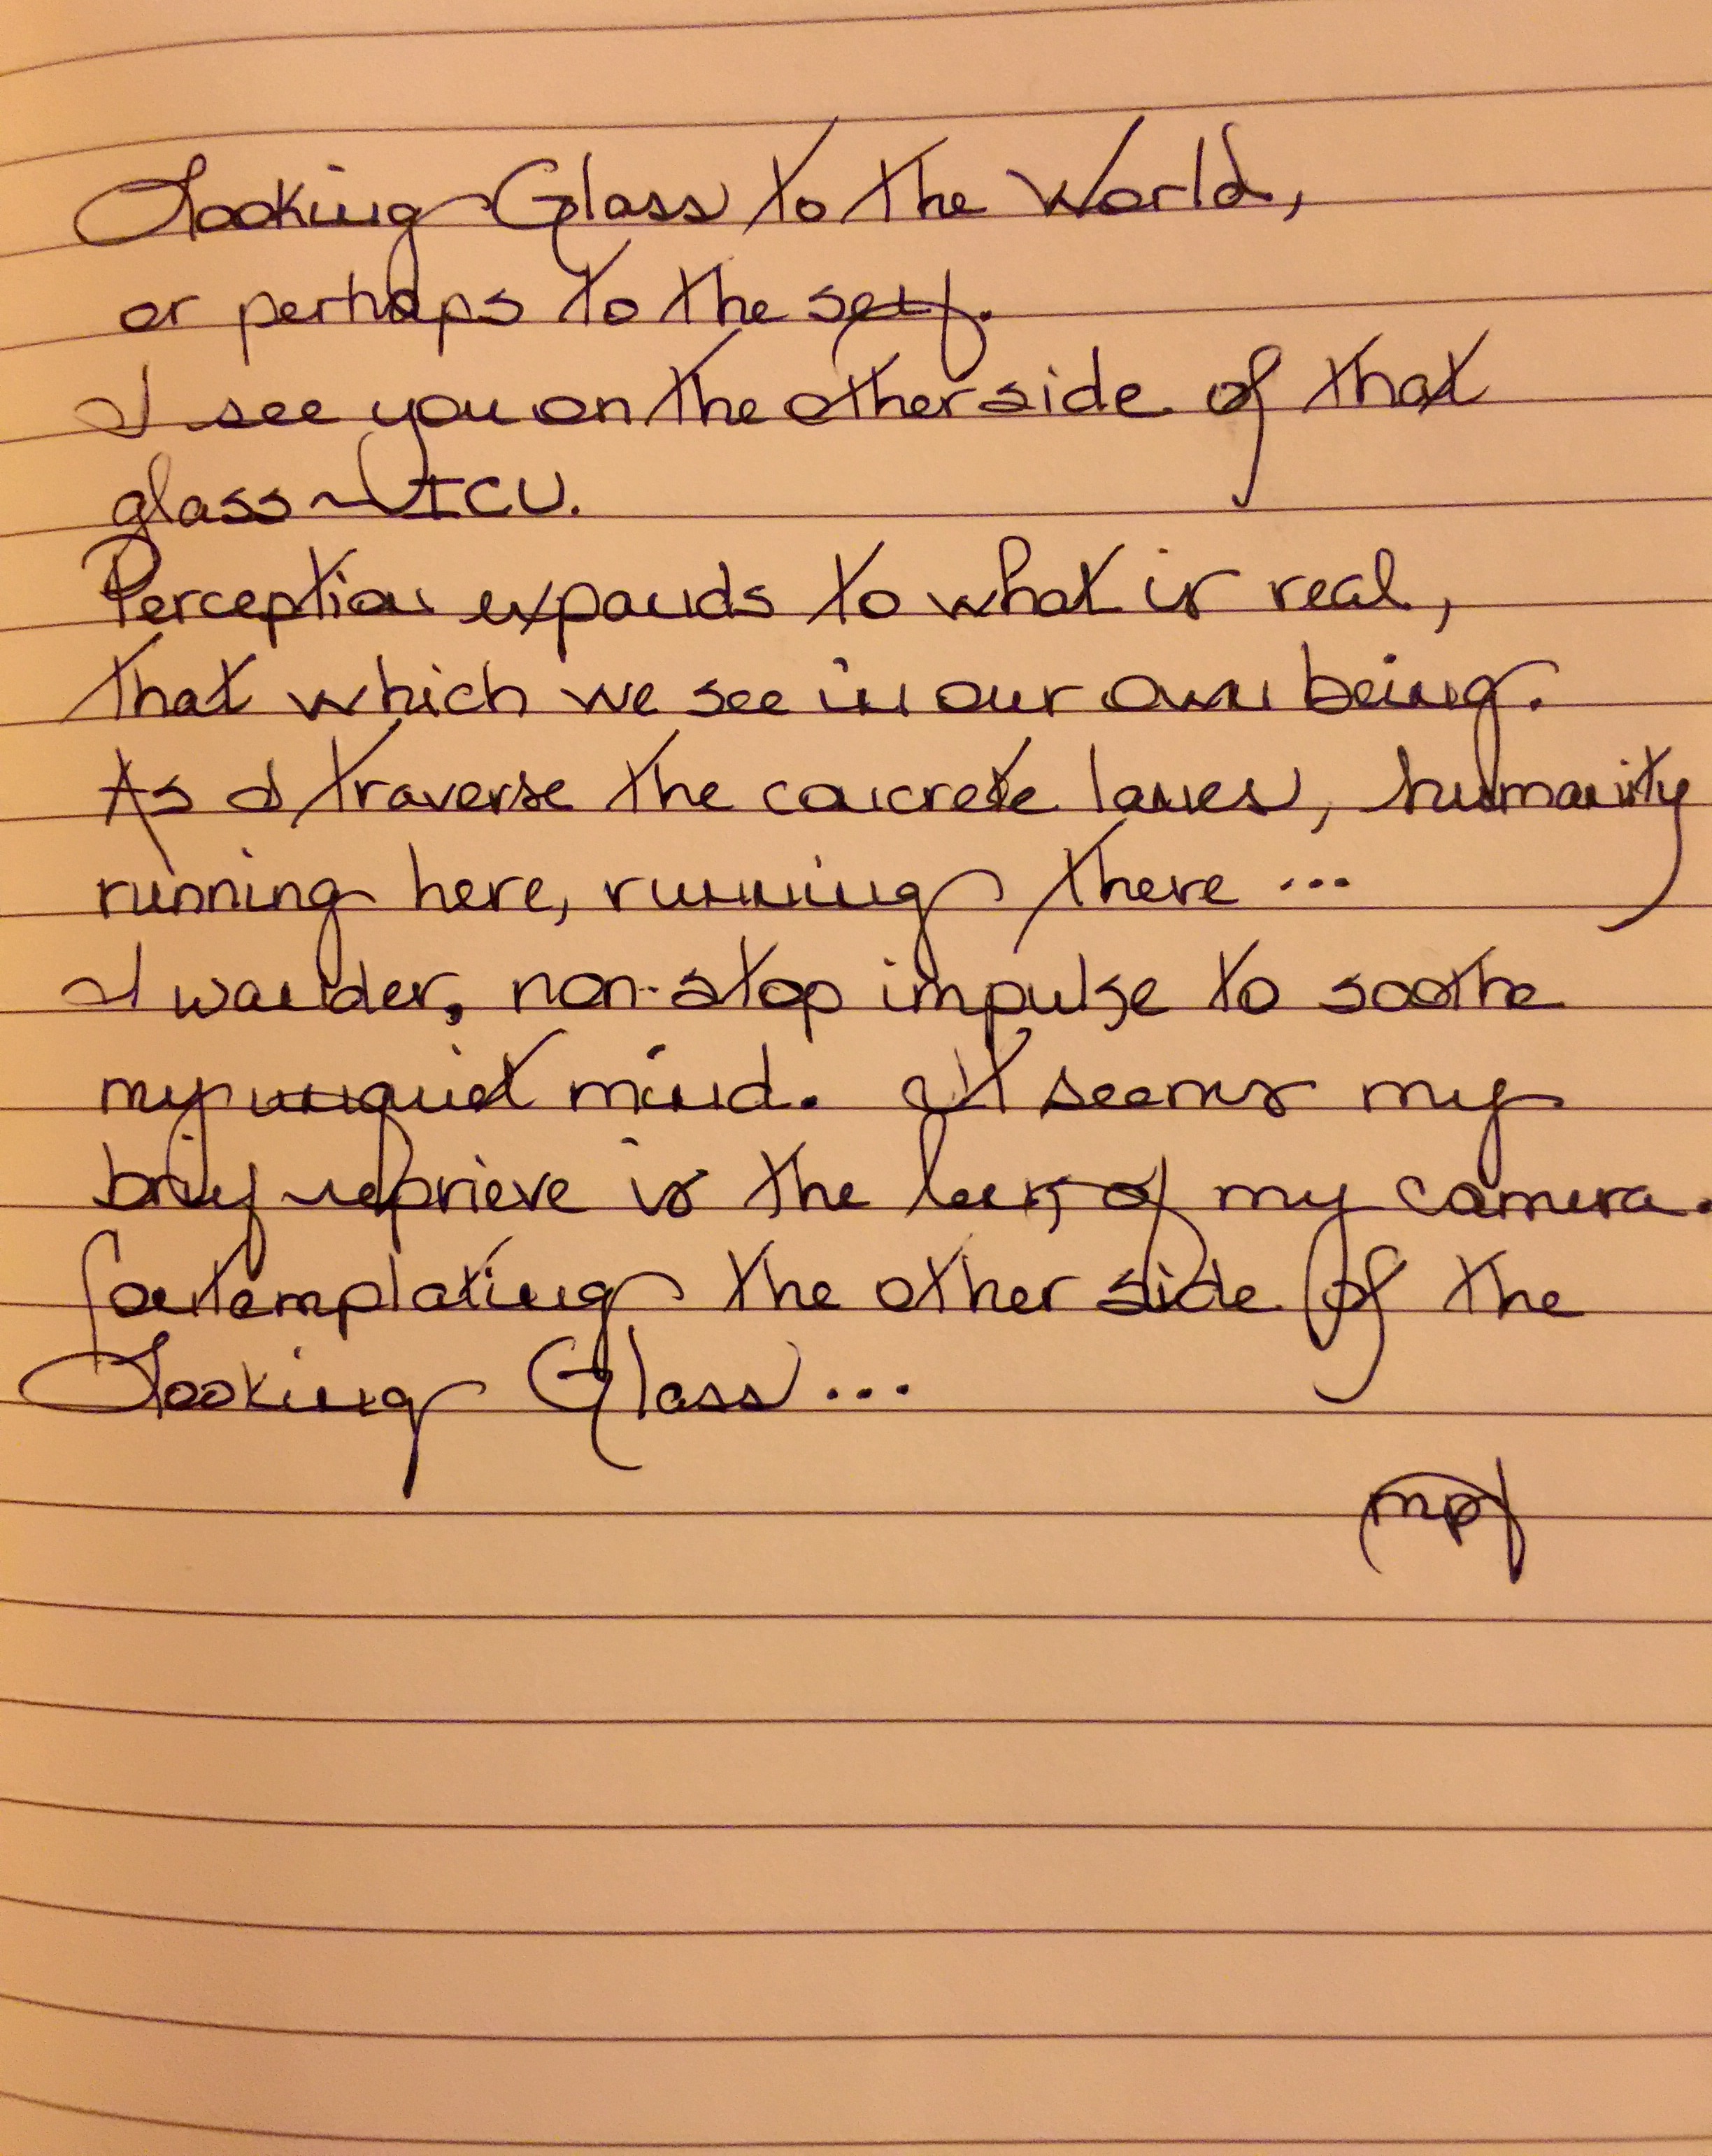 Looking Glass to the World,
or perhaps to the self.
I see you on the other side of that
glass ~ ICU.
Perception expands to what is real,
that which we see in our own being.
As I traverse the concrete lanes, humanity
running here, running there ...
I wander, non-stop impulse to soothe
my unquiet mind. It seems my
brief reprieve is the lens of my camera.
Contemplating the other side of the
Looking Glass...
mpf